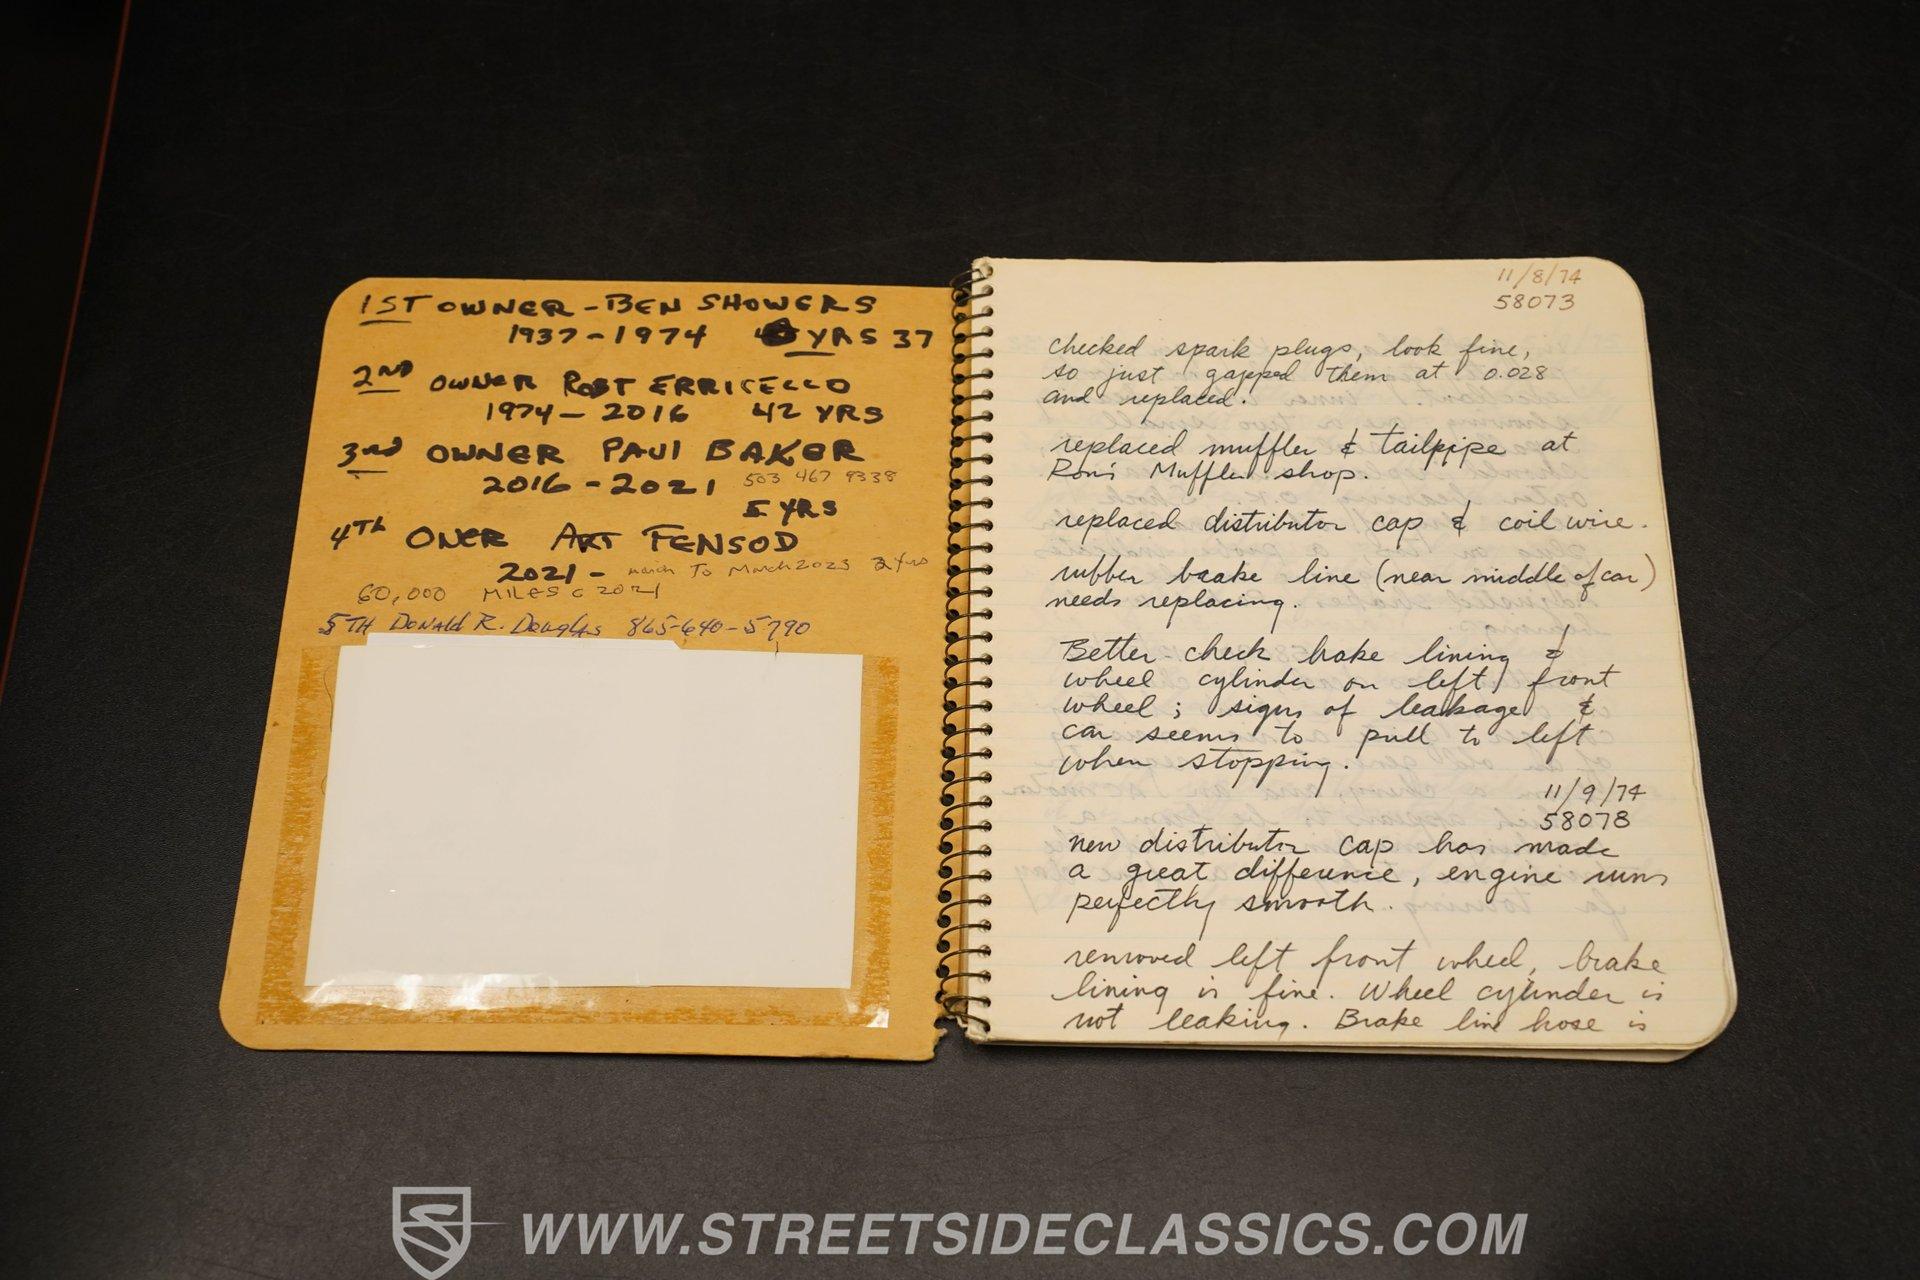 1ST OWNER - BEN SHOWERS
1937-1974 YRS 37
2ND OWNER ROBT ERRICELLO
1974- 2016 42 YRS
3rd OWNER PAUL BAKER
2016-2021 503 467 9338
5 YRS
4TH ONER ART FENSOD
2021- march To March 2023 2 Yrs
60,000 MILES 2021
5TH Donald R. Douglas 865-640-5790
11/8/74
58073
checked spark plugs, look fine,
so just gapped them at 0.028
and replaced.
replaced muffler & tailpipe at
Ron's Muffler shop.
replaced distributor cap & coil wire.
rubber brake line (near middle of car)
needs replacing.
Better check brake lining &
wheel cylinder on left front
wheel; signs of leakage &
car seems to pull to left
when stopping.
11/9/74
58078
new distributor cap has made
a great difference, engine runs
perfectly smooth.
removed left front wheel, brake
lining is fine. Wheel cylinder is
not leaking. Brake line hose is
WWW.STREETSIDECLASSICS.COM